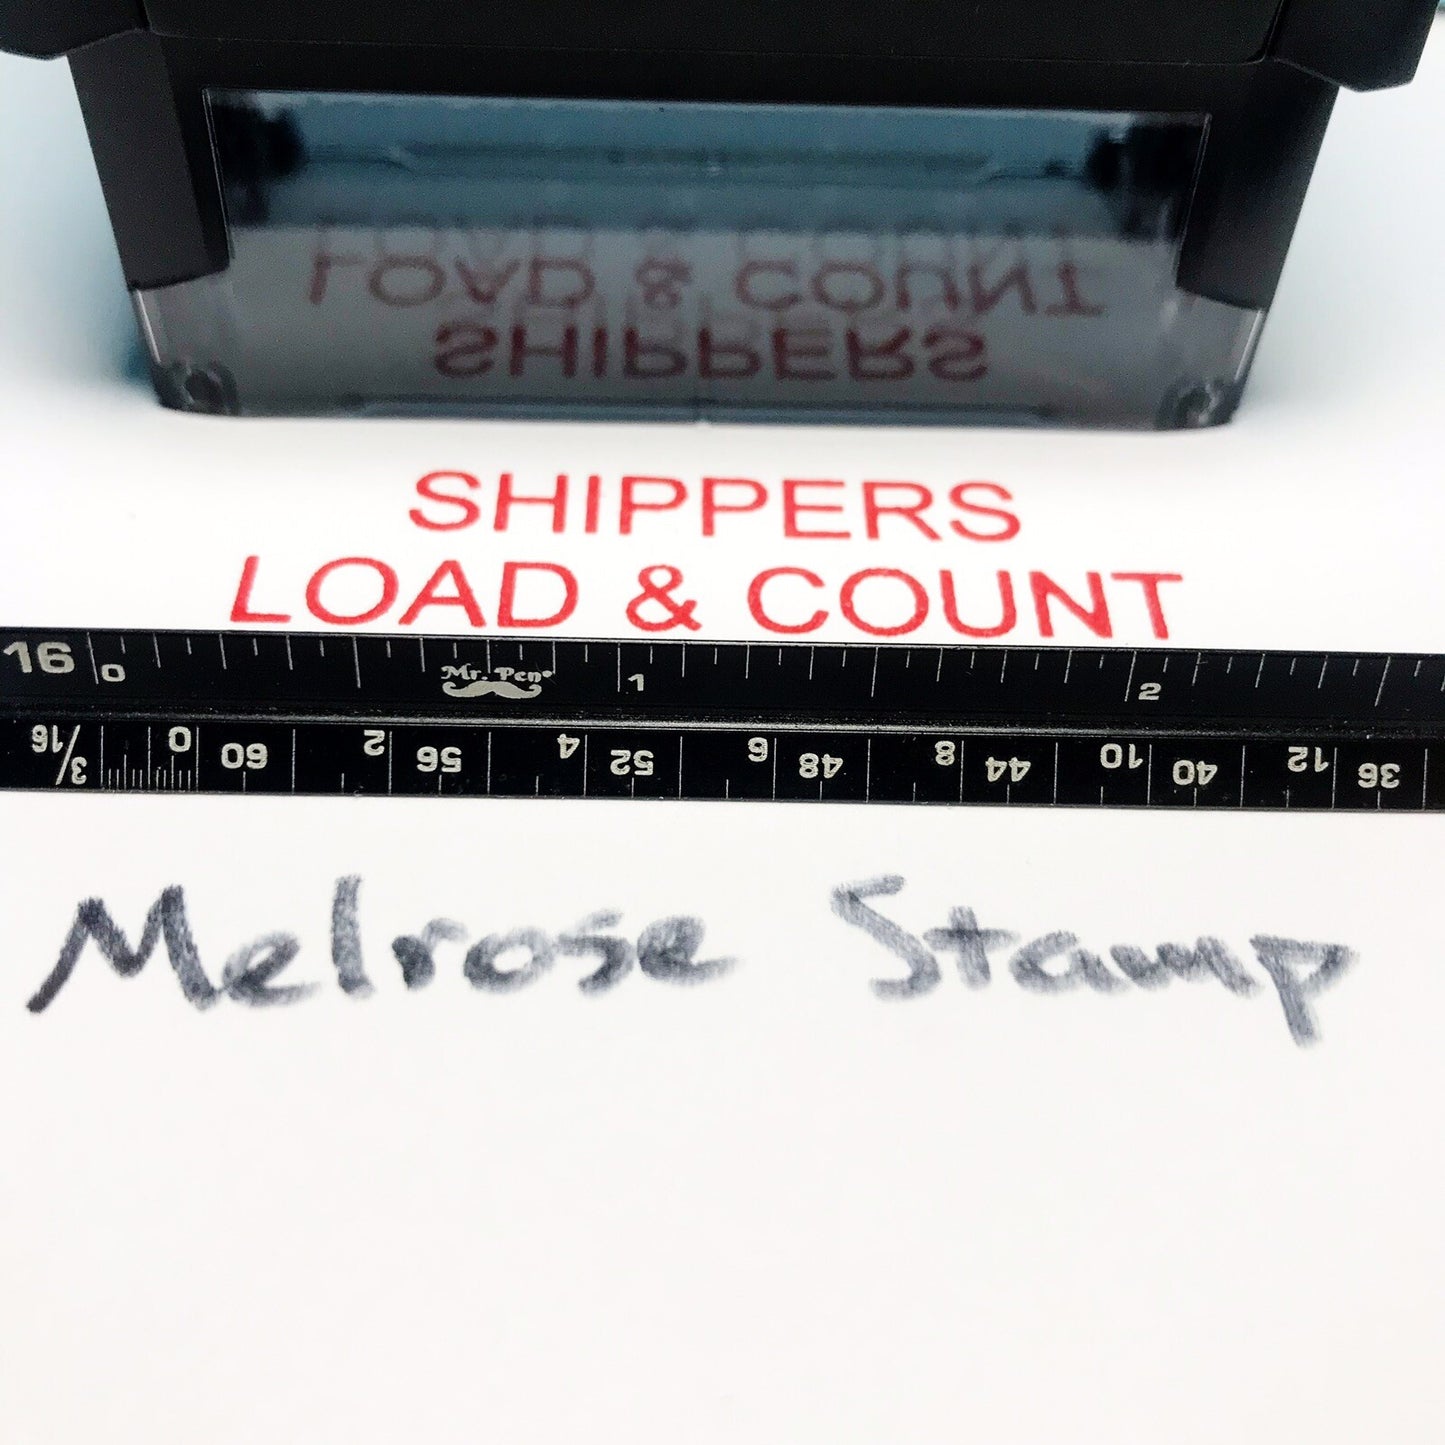 LOAD & COUNT
SHIPPERS
SHIPPERS
LOAD & COUNT
16 0 Mr. Pen® 1 2
3/16 0 60 2 56 4 52 6 48 8 44 10 40 12 36
Melrose Stamp